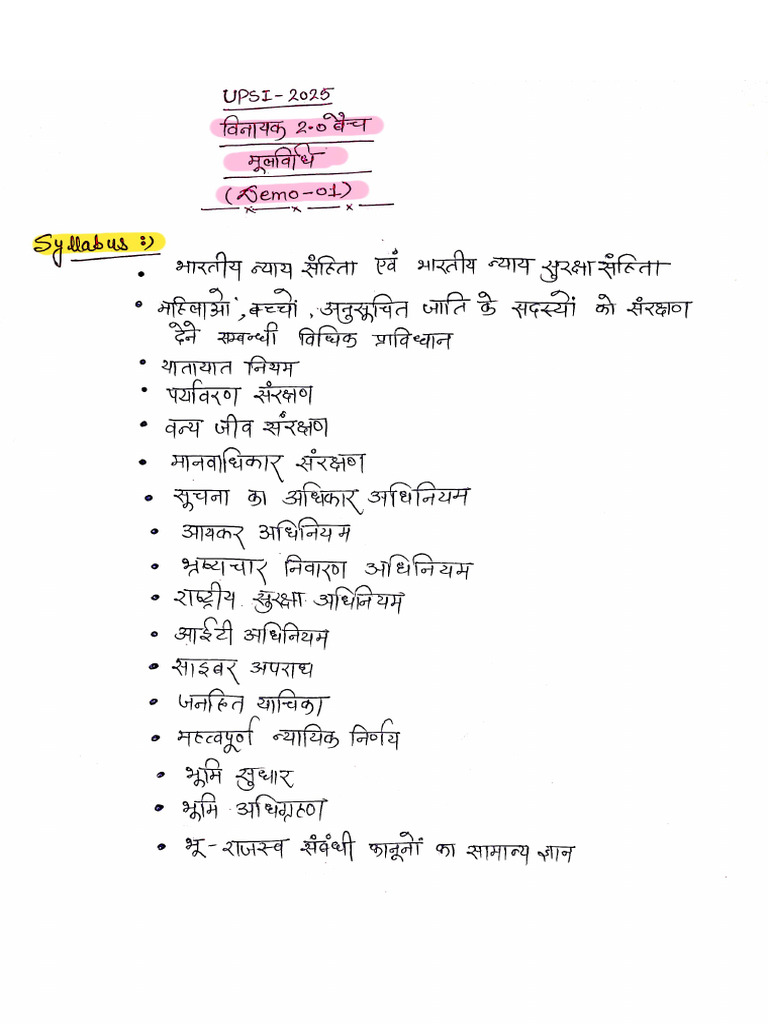 UPSI-2025
विनायक 2.0 बैच
मूलविधि
(Demo-01)
Syllabus :)
• भारतीय न्याय संहिता एवं भारतीय न्याय सुरक्षा संहिता
• महिलाओं, बच्चों, अनुसूचित जाति के सदस्यों को संरक्षण
देने सम्बन्धी विधिक प्राविधान
• यातायात नियम
• पर्यावरण संरक्षण
• वन्य जीव संरक्षण
• मानवाधिकार संरक्षण
• सूचना का अधिकार अधिनियम
• आयकर अधिनियम
• भ्रष्याचार निवारण अधिनियम
• राष्ट्रीय सुरक्षा अधिनियम
• आईटी अधिनियम
• साइबर अपराध
• जनहित याचिका
• महत्वपूर्ण न्यायिक निर्णय
• भूमि सुधार
• भूमि अधिग्रहण
• भू-राजस्व संबंधी कानूनों का सामान्य ज्ञान